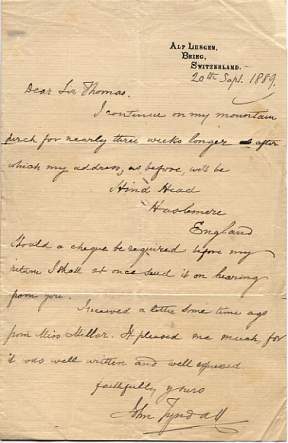 ALP LUSGEN,
BRIEG,
SWITZERLAND.
20th Sept. 1889.
Dear Sir Thomas.
I continue on my mountain
perch for nearly three weeks longer after
which my address, as before, will be
Hind Head
Haslemere
England
Should a cheque be required before my
return I shall at once send it on hearing
from you.
I received a letter some time ago
from Miss Millar. It pleased me much for
it was well written and well expressed
faithfully yours
John Tyndall